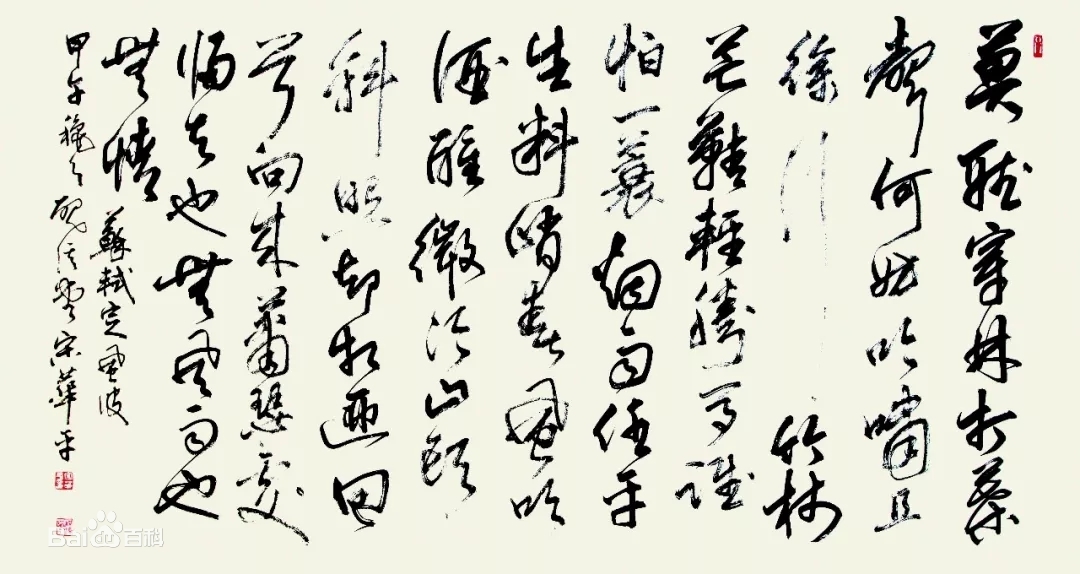 莫聽穿林打葉
聲何妨吟嘯且
徐行竹杖
芒鞋輕勝馬誰
怕一蓑烟雨任平
生料峭春風吹
酒醒微冷山頭
斜照却相迎回
首向来蕭瑟處
歸去也無風雨也
無晴
蘇軾定風波
甲午穐月宋華平
Baidu百科